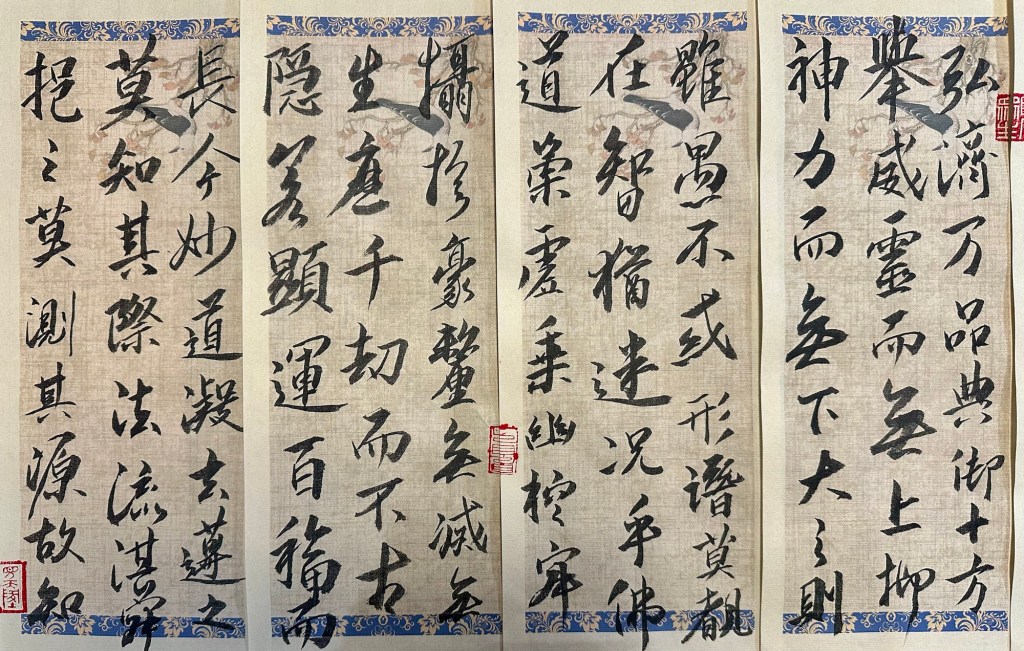 弘濟万品典御十方
舉威靈而無上抑
神力而無下大之則
雖愚不或形潛莫覩
在智猶迷況乎佛
道崇虛乘幽控寂
攝於豪釐無滅無
生歷千劫而不古
隱若顯運百福而
長今妙道凝玄遵之
莫知其際法流湛寂
挹之莫測其源故知